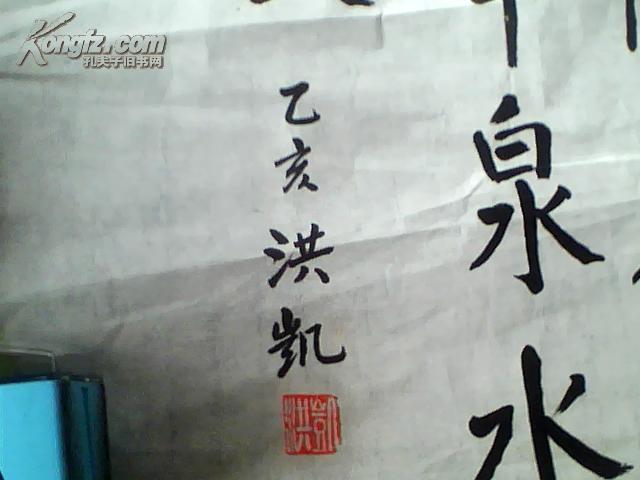 Kongfz.com
孔夫子旧书网
泉水
乙亥洪凯
洪凯